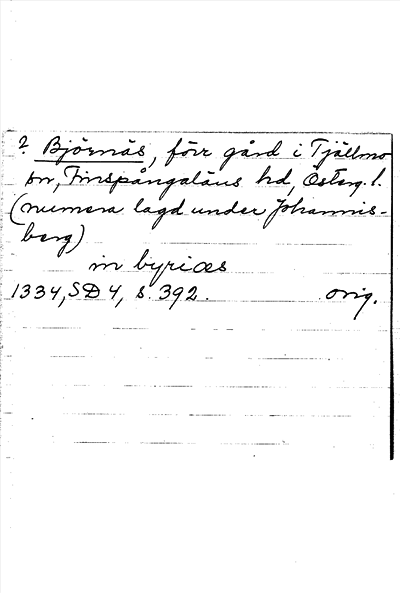 ? Björnäs, förr gård i Tjällmo
sn, Finspångaläns hd, Österg. l.
(numera lagd under Johannis-
berg)
in byrices
1334, SD 4, s. 392. orig.